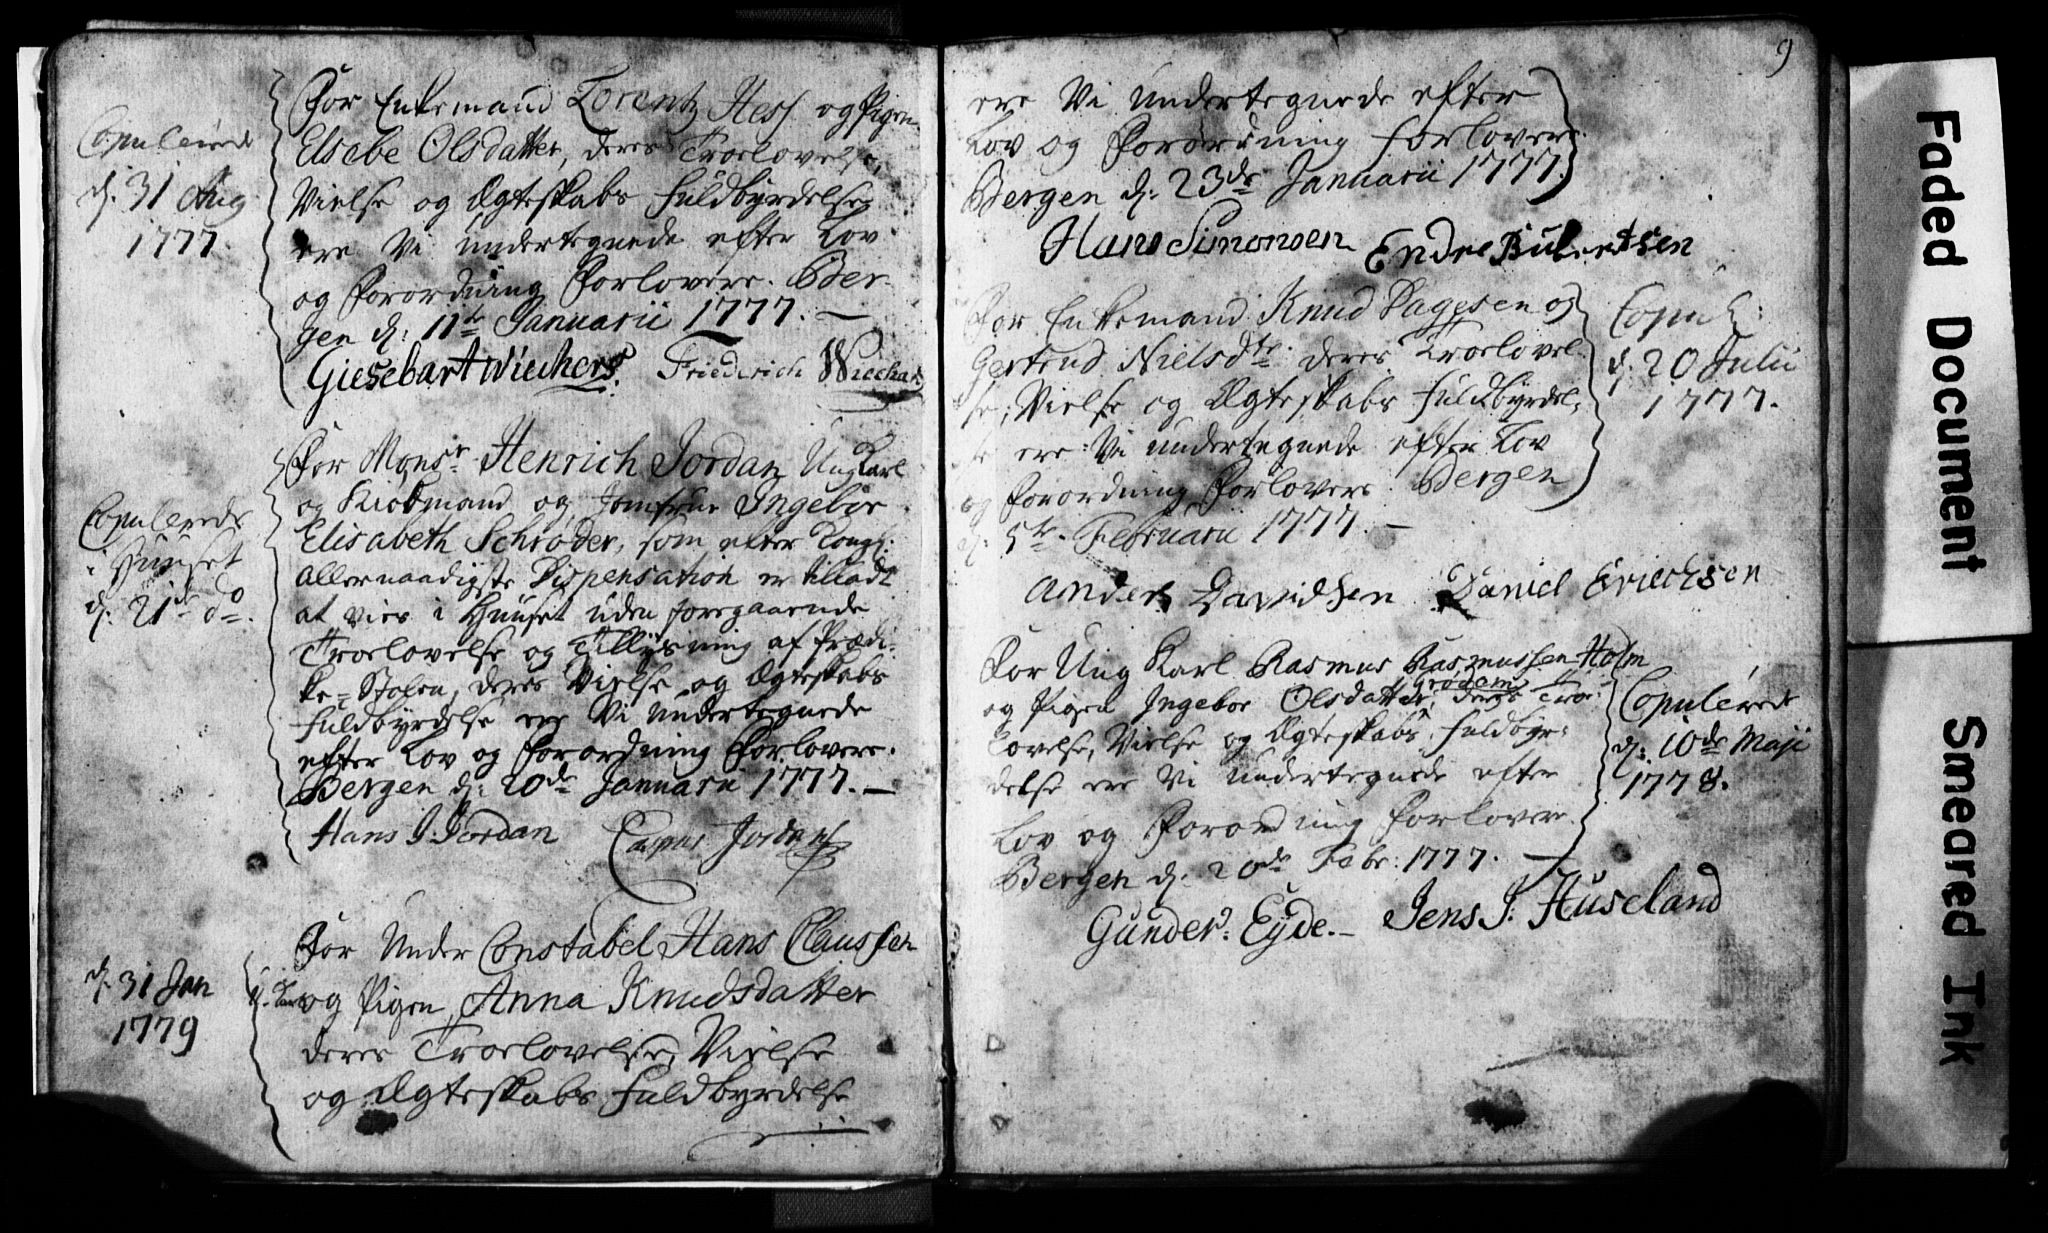 Copulerede
d: 31 Aug
1777.
For Enkemand Lorentz Hess og Pigen
Elsebe Olsdatter, deres Troelovelse,
Vielse og Ægteskabs Fuldbyrdelse
ere Vi undertegnede efter Lov
og Forordning Forlovere. Ber-
gen d: 11te Januarii 1777. —
Giesebart Wiechers. Friedrich Wiechers
Copulerede
i Huuset
d: 21de do.
For Monsr Henrich Jordan Ung Karl
og Kiøbmand og Jomfrue Ingebor
Elisabeth Schrøder, som efter Kongl:
allernaadigste Dispensation er tilladt
at vies i Huuset uden foregaaende
Troelovelse og Tillysning af Prædi-
ke-Stolen, deres Vielse og Ægteskabs
Fuldbyrdelse ere Vi undertegnede
efter Lov og Forordning Forlovere.
Bergen d: 20de Januarii 1777. —
Hans J. Jordan Casper Jordan
d. 31 Jan
1779
For Under Constabel Hans Claussen
og Pigen Anna Knudsdatter
deres Troelovelse, Vielse
og Ægteskabs Fuldbyrdelse
9
ere Vi undertegnede efter
Lov og Forordning Forlovere.
Bergen d: 23de Januarii 1777.
Hans Simonsen Endre Butentsen
For Enkemand Knud Dagesen og
Gertrud Nielsdtr deres Troelovel-
se, Vielse og Ægteskabs Fuldbyrdel-
se ere Vi undertegnede efter Lov
og Forordning Forlovere. Bergen
d. 5te Februarii 1777. —
Copul:
d: 20 Julii
1777.
Anders Davidsen Daniel Erichsen
For Ung Karl Rasmus Rasmussen Holm
og Pigen Ingebor Olsdatter Grødem, deres Troe-
lovelse, Vielse og Ægteskabs Fuldbyr-
delse ere Vi undertegnede efter
Lov og Forordning Forlovere.
Bergen d. 20de Febr: 1777. —
Copulerede
d: 10de Maji
1778.
Gunder Eyde. — Jens J: Huseland
Faded Document
Smeared Ink